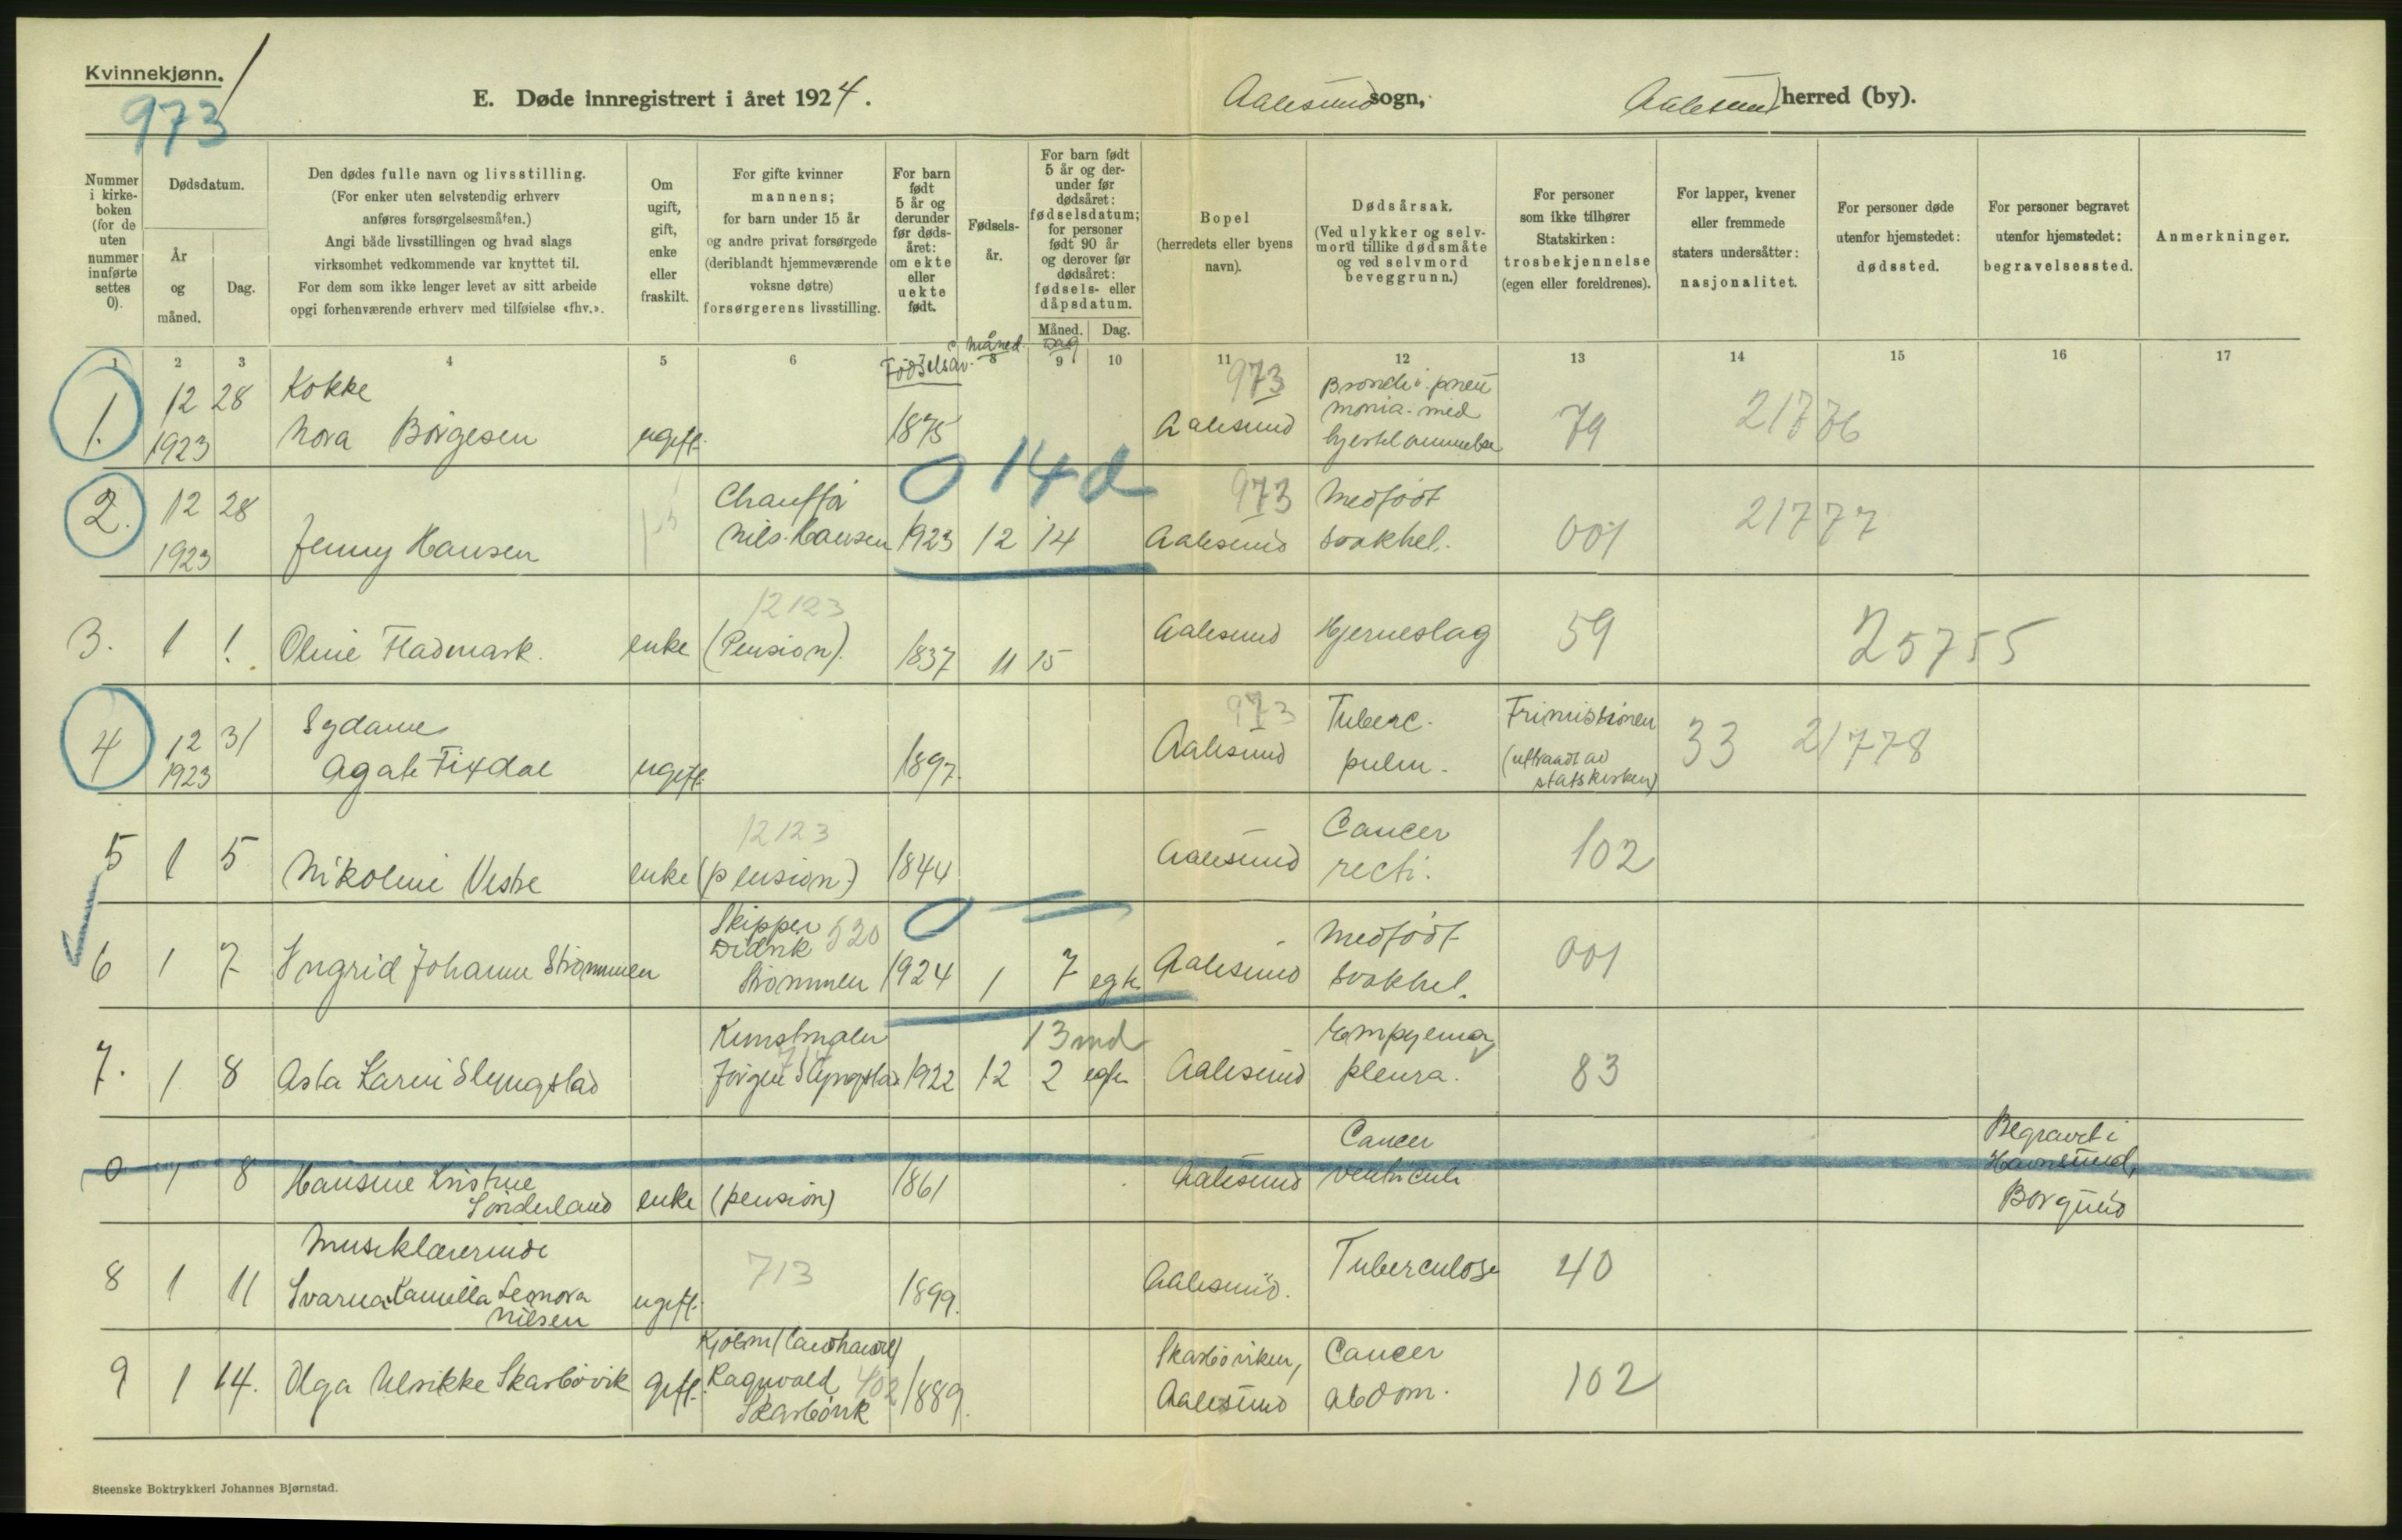 Kvinnekjønn.
973
E. Døde innregistrert i året 1924.
Aalesund sogn,
Aalesund herred (by).
Nummer i kirkeboken (for de uten nummer innførte settes 0).
Dødsdatum.
År og måned.
Dag.
Den dødes fulle navn og livsstilling.
(For enker uten selvstendig erhverv
anføres forsørgelsesmåten.)
Angi både livsstillingen og hvad slags
virksomhet vedkommende var knyttet til.
For dem som ikke lenger levet av sitt arbeide
opgi forhenværende erhverv med tilføielse «fhv.».
Om ugift, gift, enke eller fraskilt.
For gifte kvinner
mannens;
for barn under 15 år
og andre privat forsørgede
(deriblandt hjemmeværende
voksne døtre)
forsørgerens livsstilling.
For barn født 5 år og derunder før dødsåret: om ekte eller uekte født.
Fødsels-
år.
For barn født 5 år og derunder før dødsåret: fødselsdatum; for personer født 90 år og derover før dødsåret: fødsels- eller dåpsdatum.
Måned. Dag.
Bopel
(herredets eller byens
navn).
Dødsårsak.
(Ved ulykker og selv-
mord tillike dødsmåte
og ved selvmord
beveggrunn.)
For personer
som ikke tilhører
Statskirken:
trosbekjennelse
(egen eller foreldrenes).
For lapper, kvener
eller fremmede
staters undersåtter:
nasjonalitet.
For personer døde
utenfor hjemstedet:
dødssted.
For personer begravet
utenfor hjemstedet:
begravelsessted.
Anmerkninger.
1 2 3 4 5 6 Fødselsår. Måned 8 Dag 9 10 11 12 13 14 15 16 17
1. 12 1923 28 Kokke Nora Børgesen ugift. 1875 973 Aalesund Bronchi. pneumonia. med hjertelammelse 79 21776
0 14 d
2. 12 1923 28 Jenny Hansen Chauffør Nils Hansen 1923 12 14 973 Aalesund Medfødt svakhet. 001 21777
3. 1 1. Oline Fladmark. enke 12123 (Pension). 1837 11 15 Aalesund Hjerneslag 59 25755
4 12 1923 31 Sydame Agate Fixdal ugift. 1897. 973 Aalesund Tuberc. pulm. Frimissionen (uttraadt av statskirken) 33 21778
5 1 5 Nikoline Vestre enke 12123 (pension) 1844 Aalesund Cancer recti. 102
0
6 1 7 Yngrid Johanne Strømmen Skipper Didrik Strømmen 520 1924 1 7 egte Aalesund Medfødt svakhet. 001
7. 1 8 Asta Karin Slyngstad Kunstmaler Jørgen Slyngstad 1922 12 2 13 md egte Aalesund Empyema pleura. 83
0 1 8 Hansine Kristine Sønderland enke (pension) 1861 Aalesund Cancer ventriculi Begravet i Havnsund, Borgund
8 1 11 Musiklærerinde Svarna Kamilla Leonora Nilsen ugift. 713 1899. Aalesund. Tuberculose 40
9 1 14. Olga Ulrikke Skarbøvik gift. Kjøbm (landhandl) Ragnvald Skarbøvik 402 1889. Skarbøviken, Aalesund Cancer abdom. 102
Steenske Boktrykkeri Johannes Bjørnstad.